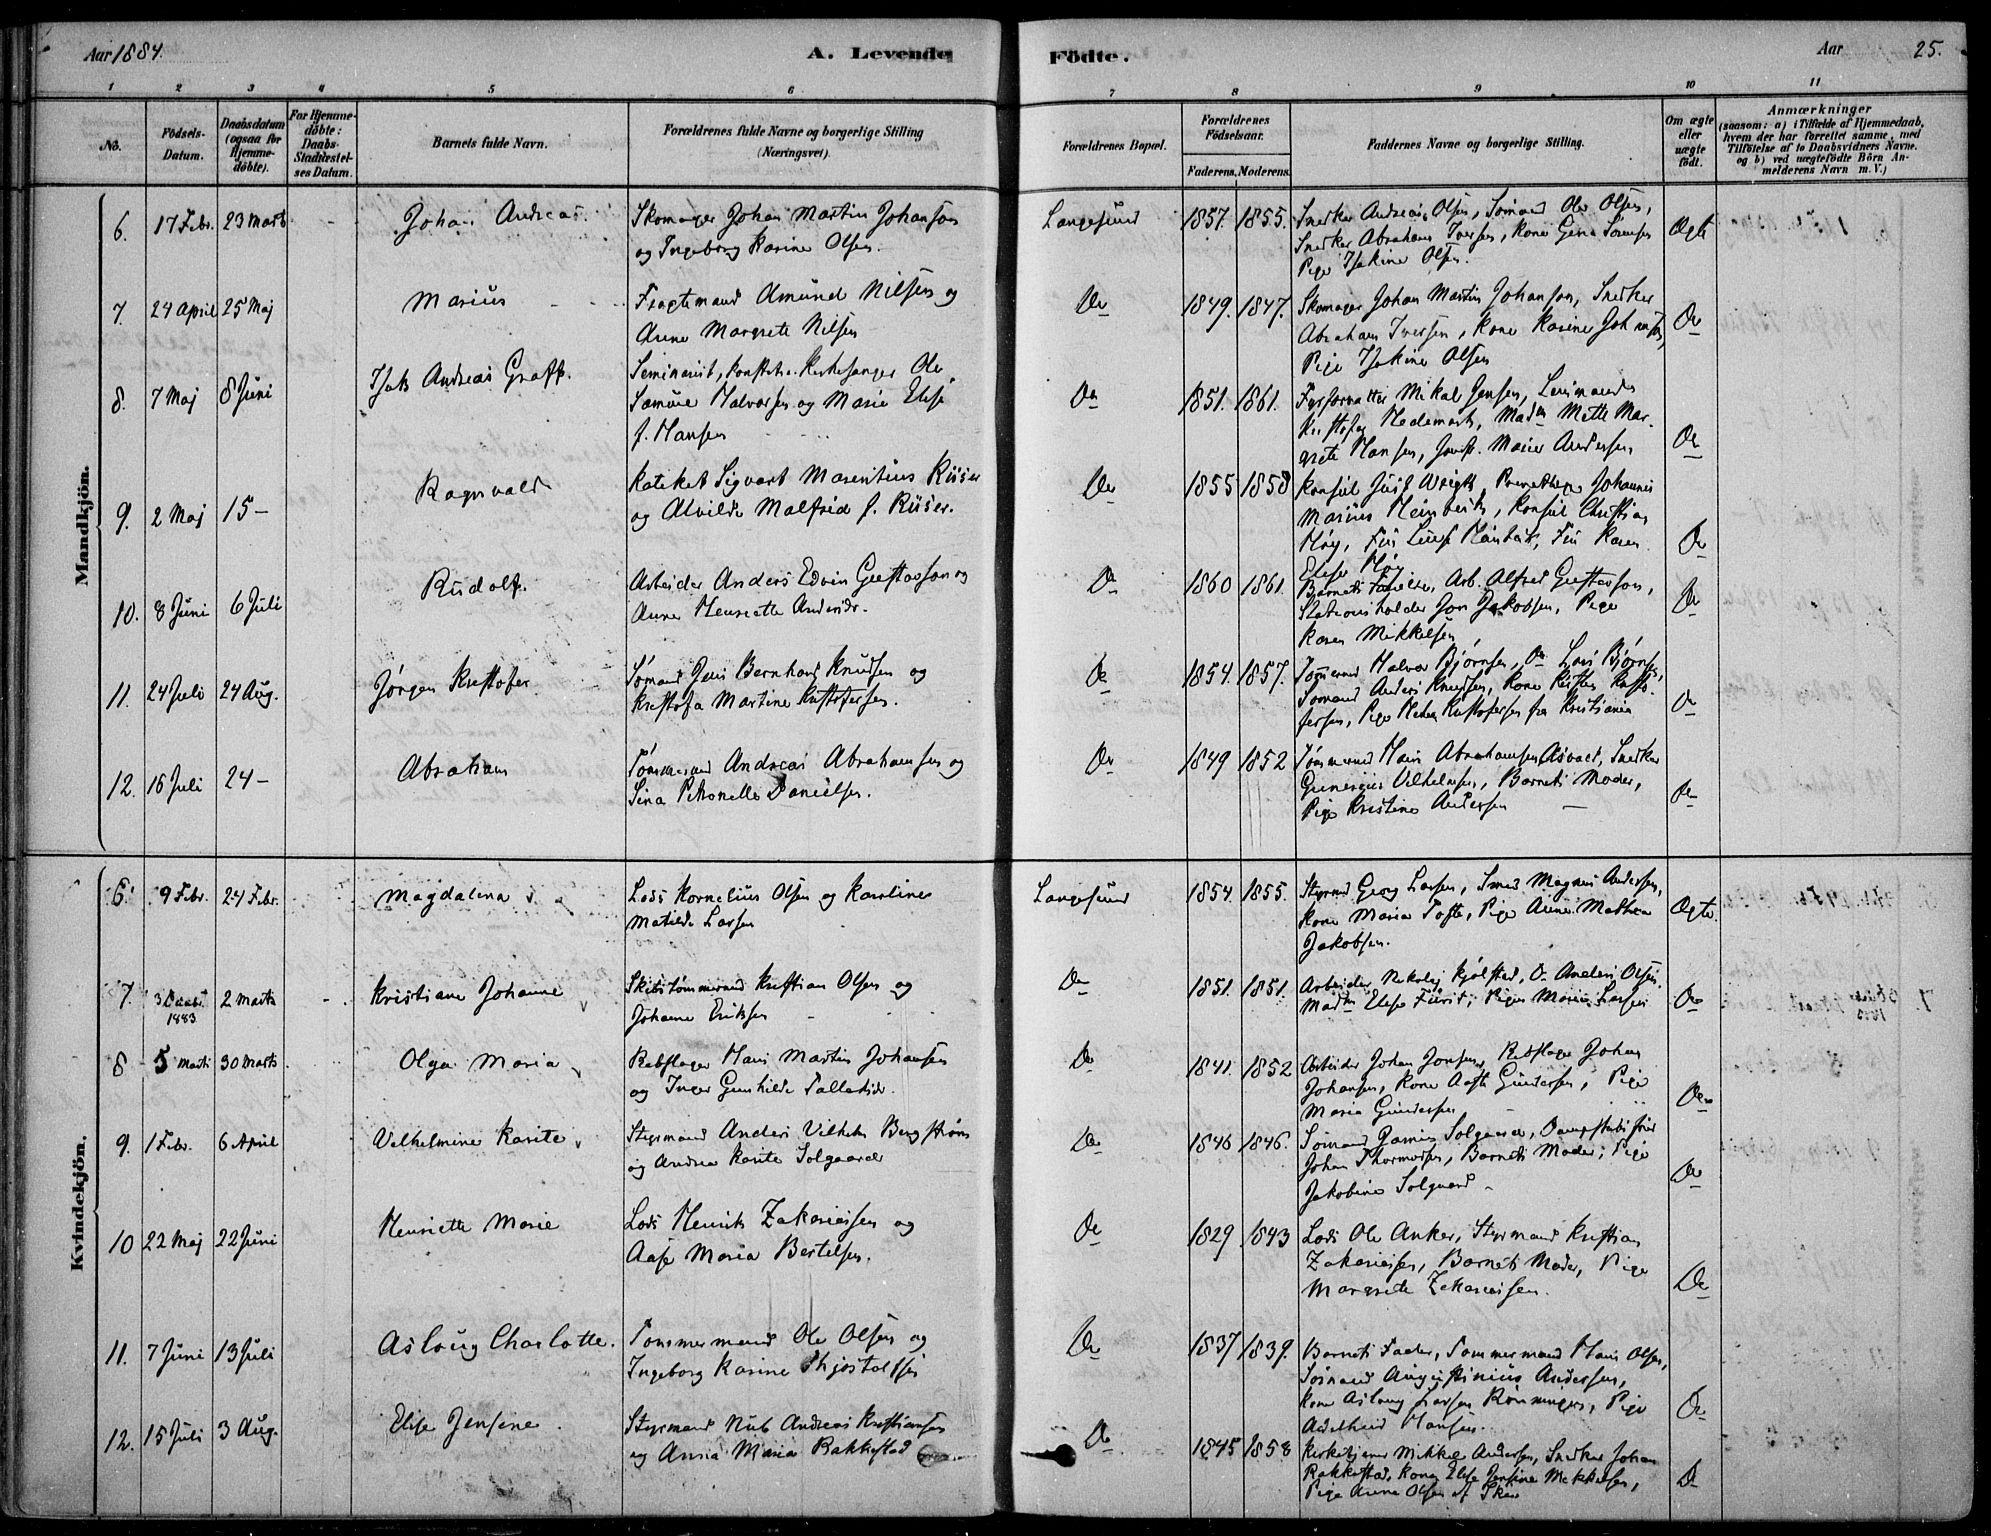 Aar 1884.
A. Levende
Födte.
Aar
25.
1
2
3
4
5
6
7
8
9
10
11
No.
Födsels-
Datum.
Daabsdatum
(ogsaa for
Hjemme-
döbte).
For Hjemme-
döbte:
Daabs-
Stadfæstel-
ses Datum.
Barnets fulde Navn.
Forældrenes fulde Navne og borgerlige Stilling
(Næringsvei).
Forældrenes Bopæl.
Forældrenes
Födselsaar.
Faderens.
Moderens.
Faddernes Navne og borgerlige Stilling.
Om ægte
eller
uægte
födt.
Anmærkninger
(saasom: a) i Tilfælde af Hjemmedaab,
hvem der har forrettet samme, med
Tilföielse af to Daabsvidners Navne.
og b) ved uægtefödte Börn An-
melderens Navn m. V.)
Mandkjön.
6.
17 Febr.
23 Marts
Johan Andreas.
Skomager Johan Martin Johansen
og Ingeborg Karine Olsen.
Langesund
1857.
1855.
Snedker Andreas Olsen, Sømand Ole Olsen,
Snedker Abraham Iversen, Kone Gina Sørensen
Pige Isakine Olsen.
Ægte
7.
24 April
25 Maj
Marius
Fragtemand Amund Nilsen og
Anne Margrete Nilsen
Do
1849.
1847.
Skomager Johan Martin Johansen, Snedker
Abraham Iversen, Kone Karine Johansen,
Pige Isakine Olsen
Do
8.
7 Maj
8 Juni
Isak Andreas Graff.
Seminarist, konst. Kirkesanger Ole
Samuel Halvorsen og Marie Elise
f. Hansen
Do
1851.
1861.
Fyrforvalter Mikal Jensen, Lensmand
Kristofer Hedemark, Madm Mette Mar-
grete Hansen, Jomf. Marie Andersen,
Do
9.
2 Maj
15 –
Ragnvald
Kateket Sigvart Marentius Riiser
og Alvilde Malfrid f. Riiser.
Do
1855
1858
Konsul Just Wright, Johannes
Marius, Konsul Christian
Høy, Karen
Elise Høy
Do
10.
8 Juni
6 Juli
Rudolf.
Arbeider Anders Edvin Gustavson og
Anne Henriette Andersdr.
Do
1860
1861.
Barnets Fader, Arb. Alfred Gustavson,
Stationsholder Jon Jakobsen, Pige
Karen Mikkelsen
Do
11.
24 Juli
24 Aug.
Jørgen Kristofer
Sømand Jens Bernhard Knudsen og
Kristofa Martine Kristofersen.
Do
1854.
1857.
Tømmermd Halvor Bjørnsen, Do Lars Bjørnsen,
Sømand Anders Knudsen, Kone Kristo-
fersen, Pige Kristofersen fra Kristiania
Do
12.
16 Juli
24 –
Abraham
Tømmermd Andreas Abrahamsen og
Lina Petronelle Danielsen.
Do
1849
1852
Tømmermd Hans Abrahamsen Asvald, Snedker
Gunerius Vilhelmsen, Barnets Moder,
Pige Kristine Andersen
Do
Kvindekjön.
6.
9 Febr.
24 Febr.
Magdalena
Lods Kornelius Olsen og Karoline
Matilde Larsen
Langesund
1854.
1855.
Styrmd Georg Larsen, Smed Magnus Andersen,
Kone Maria Tofte, Pige Anne Mathea
Jakobsen.
Ægte.
7.
1883
2 Marts
Kristiane Johanne
Skibstømmermd Kristian Olsen og
Johanne Eriksen
Do
1851.
1851.
Arbeider Nikolaj Kjølstad, Do Anders Olsen,
Madm Elise, Pige Marie Larsen
Do
8
5 Marts
30 Marts
Olga Maria
Rebslager Hans Martin Johansen
og Inger Gunhilde Tallaksdr.
Do
1841.
1852
Arbeider Johan Jonsen, Rebslager Johan
Johansen, Kone Aaste Gundersen, Pige
Maria Gundersen
Do
9.
1 Febr.
6 April
Vilhelmine Karite
Styrmand Anders Vilhelm Bergstrøm
og Andrea Karite Solgaard
Do
1846
1846.
Sømand Solgaard, Dampskibsfører
Johan Thormodsen, Barnets Moder, Pige
Jakobine Solgaard
Do
10
22 Maj
22 Juni
Henriette Marie
Lods Henrik Zakariassen og
Aase Maria Bertelsen.
Do
1829
1843
Lods Ole Anker, Styrmand Kristian
Zakariassen, Barnets Moder, Pige
Margrete Zakariassen.
Do
11.
7 Juni
13 Juli
Aslaug Charlotte.
Tømmermand Ole Olsen og
Ingeborg Karine Thjostolfsen
Do
1837
1839.
Barnets Fader, Tømmermand Hans Olsen,
Sømand Augustinius Andersen,
Kone Aslaug Larsen Rønningen, Pige
Adelheid Hansen.
Do
12.
15 Juli
3 Aug.
Elise Jensine
Styrmand Nub Andreas Kristiansen
og Anna Maria Bakkestad
Do
1845
1858
Kirketjener Mikkel Andersen, Snedker Johan
Bakkestad, Kone Elise Jensine Mikkelsen,
Pige Anne Olsen af Skien
Do